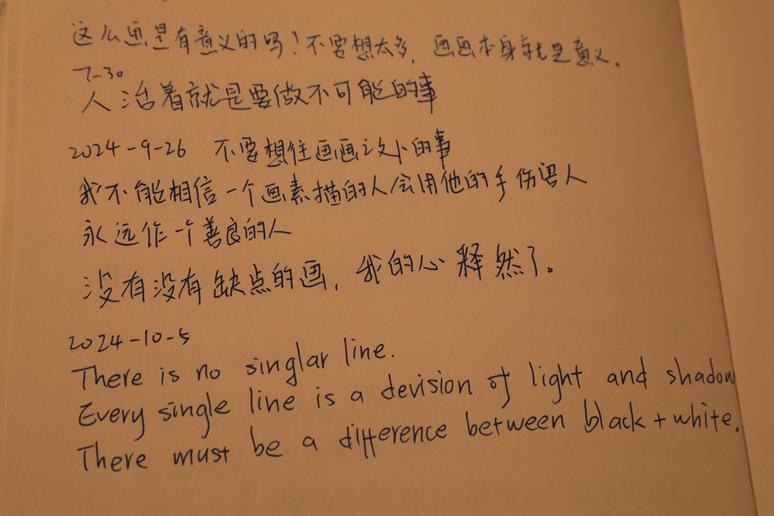 这么画是有意义的吗！不要想太多，画画本身就是意义。
7-30
人活着就是要做不可能的事
2024-9-26 不要想任画画之外的事
我不能相信一个画素描的人会用他的手伤害人
永远作一个善良的人
没有没有缺点的画，我的心释然了。
2024-10-5
There is no singlar line.
Every single line is a devision of light and shadow
There must be a difference between black + white.